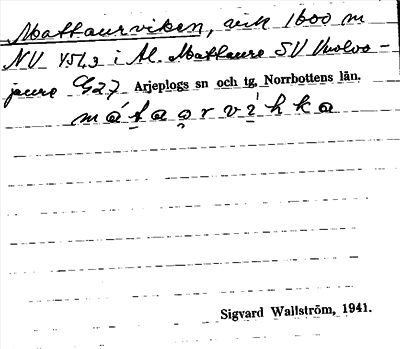 Mattaurviken, vik 1600 m
NV 451,3 i St. Mattaure SV Vuolvo-
jaure G27 Arjeplogs sn och tg, Norrbottens län.
Sigvard Wallström, 1941.